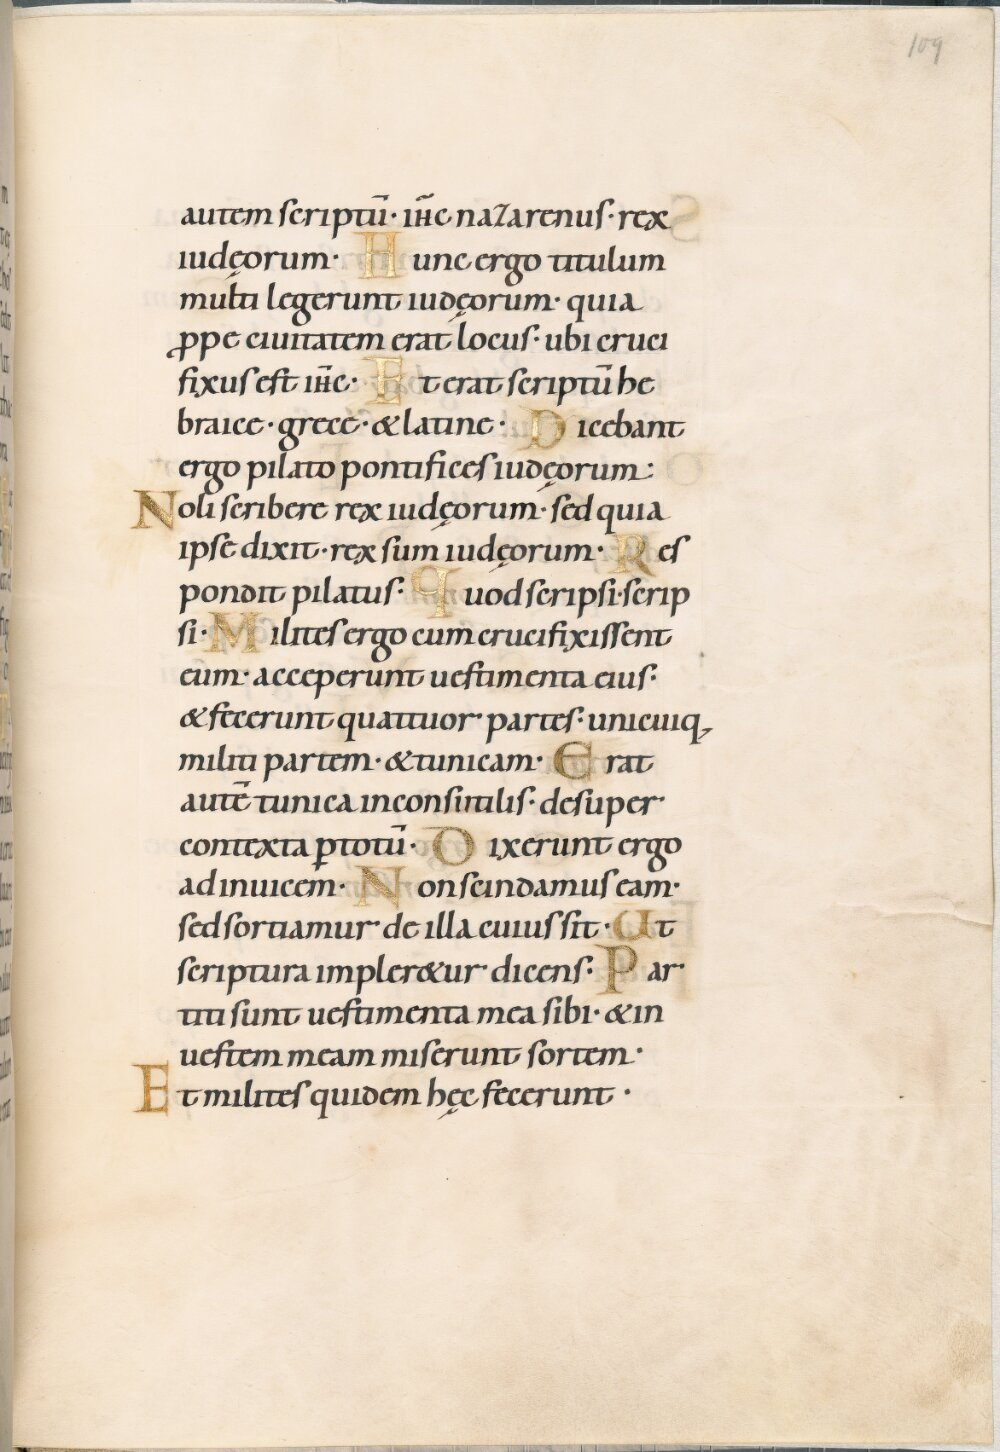 109
autem scriptū· ih̅c nazarenus· rex
iudęorum· Hunc ergo titulum
multi legerunt iudęorum· quia
ꝓpe ciuitatem erat locus· ubi cruci
fixus est ih̅c· Et erat scriptū he
braice· grece· & latine· Dicebant
ergo pilato pontifices iudęorum:
Noli scribere rex iudęorum· sed quia
ipse dixit· rex sum iudęorum· Res
pondit pilatus· Quod scripsi· scrip
si· Milites ergo cum crucifixissent
eum· acceperunt uestimenta eius·
& fecerunt quattuor partes· unicuiq;
militi partem· & tunicam· Erat
autē tunica inconsutilis· desuper
contexta ꝑ totū· Dixerunt ergo
ad inuicem· Non scindamus eam·
sed sortiamur de illa cuius sit· Ut
scriptura impler&ur dicens· Par
titi sunt uestimenta mea sibi· & in
uestem meam miserunt sortem·
Et milites quidem hęc fecerunt·